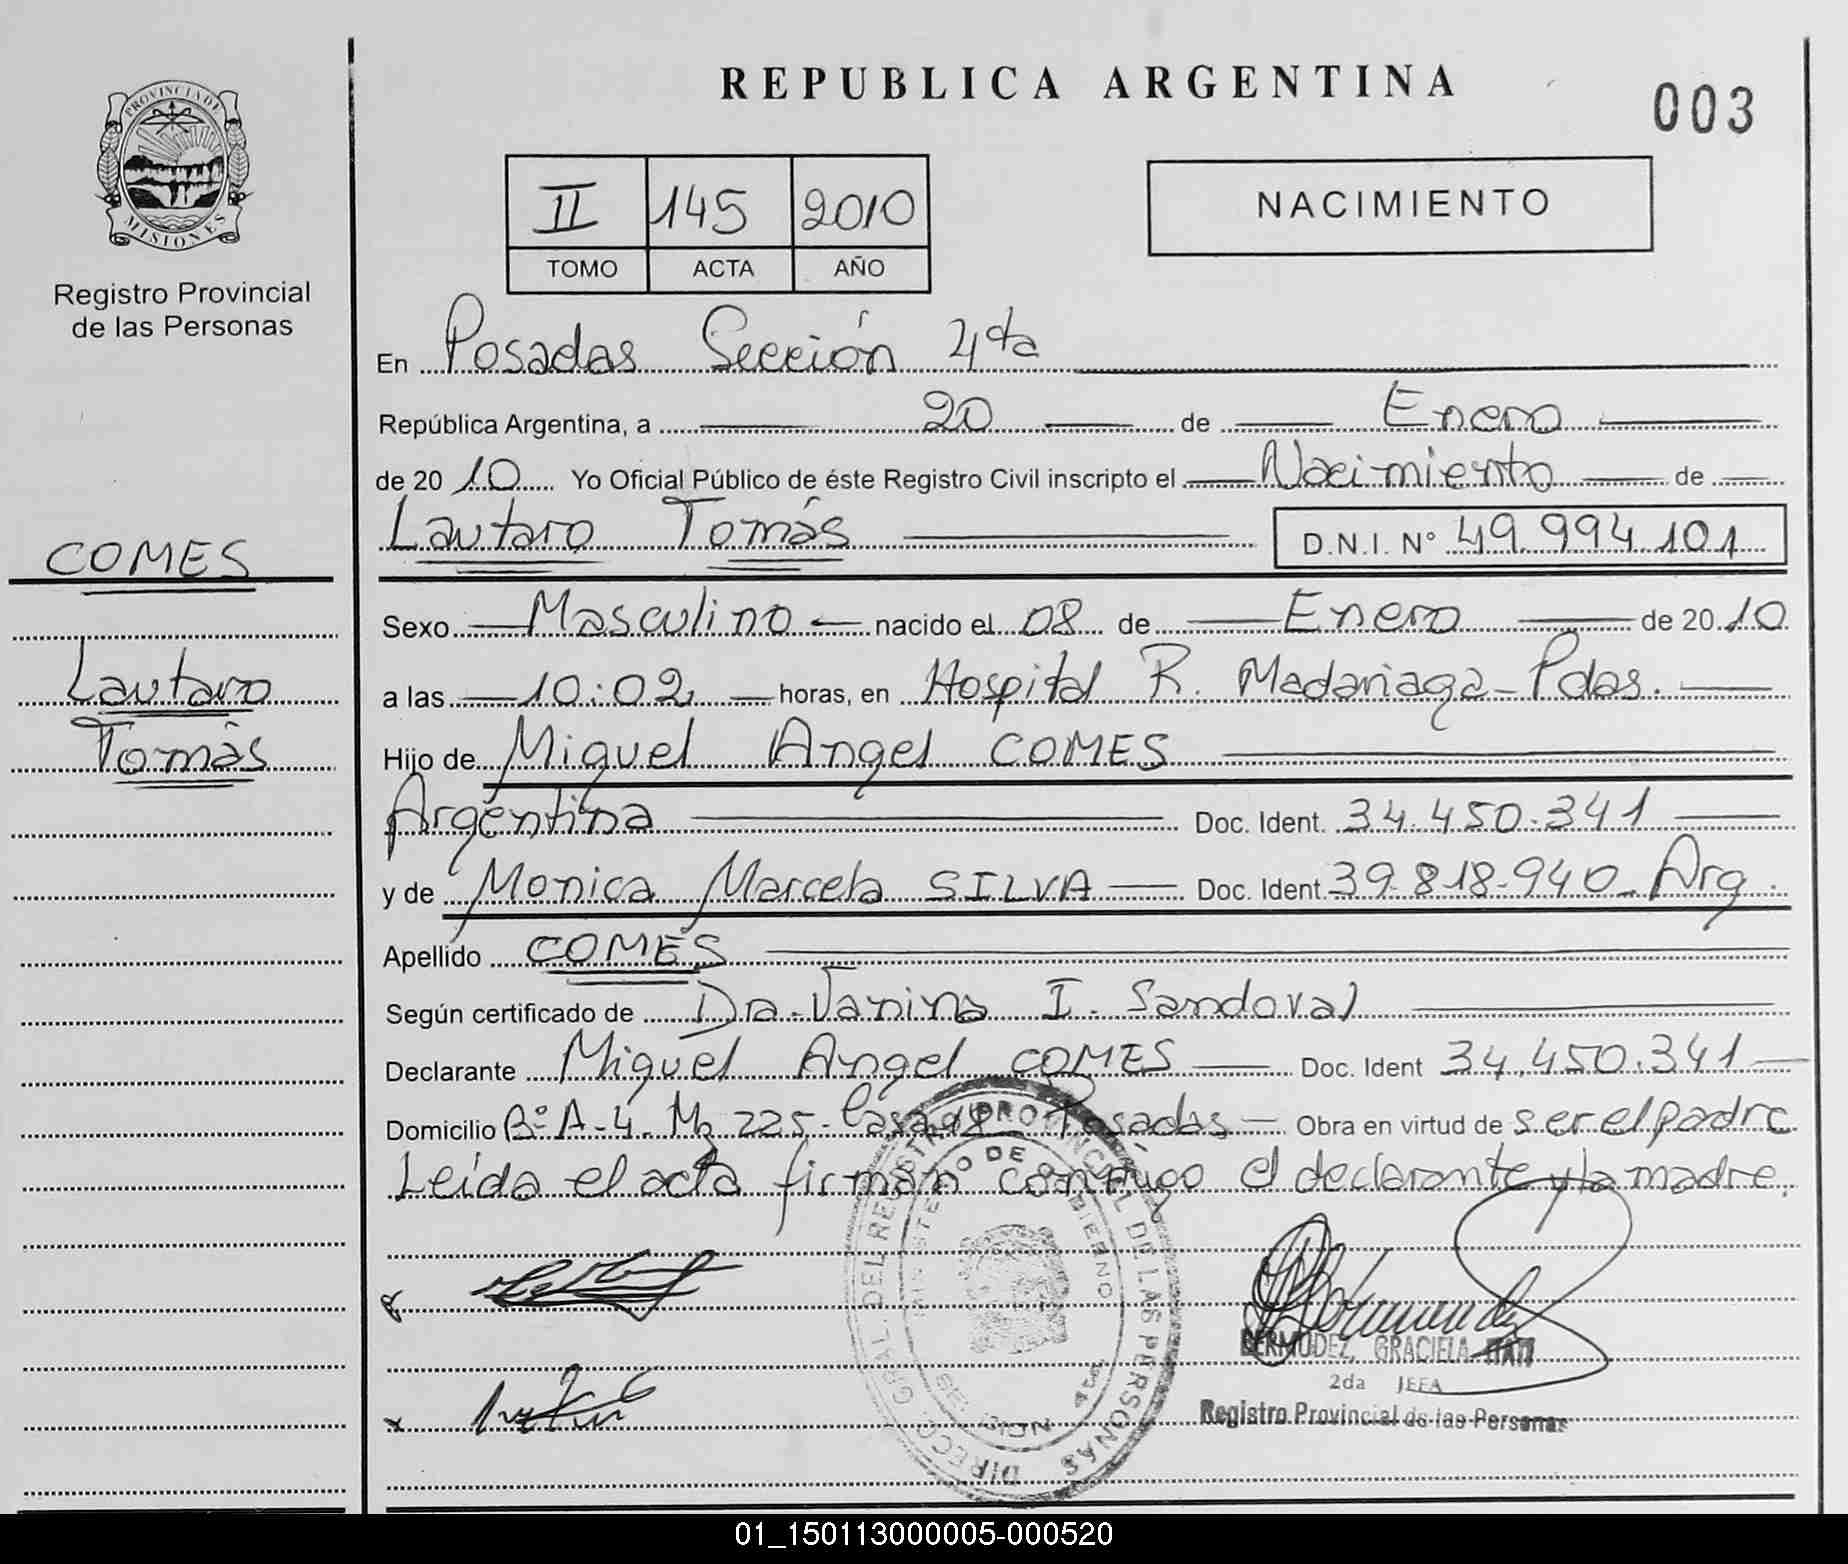 REPUBLICA ARGENTINA
003
PROVINCIA DE
MISIONES
Registro Provincial
de las Personas
II 145 2010
TOMO ACTA AÑO
NACIMIENTO
En Posadas Sección 4ta
República Argentina, a 20 de Enero
de 2010 Yo Oficial Público de éste Registro Civil inscripto el Nacimiento de
Lautaro Tomás D.N.I. N° 49.994.101
COMES
Lautaro
Tomás
Sexo Masculino nacido el 08 de Enero de 2010
a las 10:02 horas, en Hospital R. Madariaga - Pdas.
Hijo de Miguel Angel COMES
Argentina Doc. Ident. 34.450.341
y de Monica Marcela SILVA Doc. Ident. 39.818.940 - Arg.
Apellido COMES
Según certificado de Dra. Vanina I. Sandoval
Declarante Miguel Angel COMES Doc. Ident 34.450.341
Domicilio B° A-4. Mz 225. Casa Posadas Obra en virtud de ser el padre
Leida el acta firman conmigo el declarante y la madre.
BERMUDEZ, GRACIELA ITATI
2da JEFA
Registro Provincial de las Personas
DIRECC GRAL. DEL REGISTRO PROVINCIAL DE LAS PERSONAS
MINISTERIO DE GOBIERNO
01_150113000005-000520